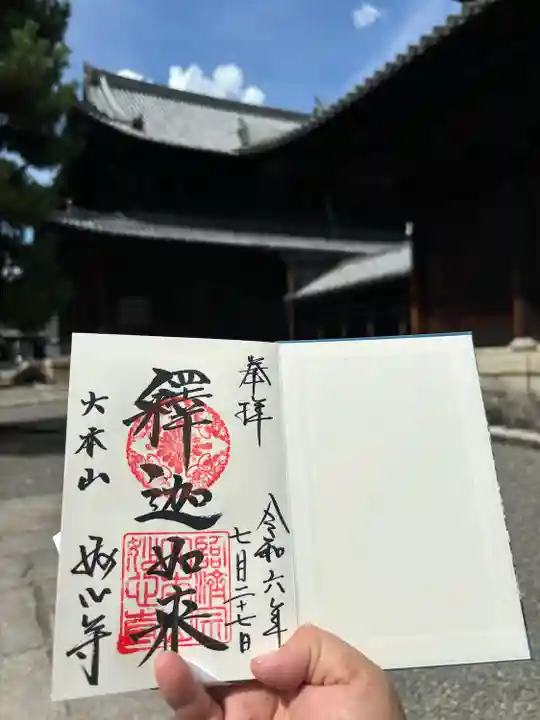 奉拝
令和六年
七月二十七日
釋迦如来
大本山
妙心寺
臨済宗
妙心寺